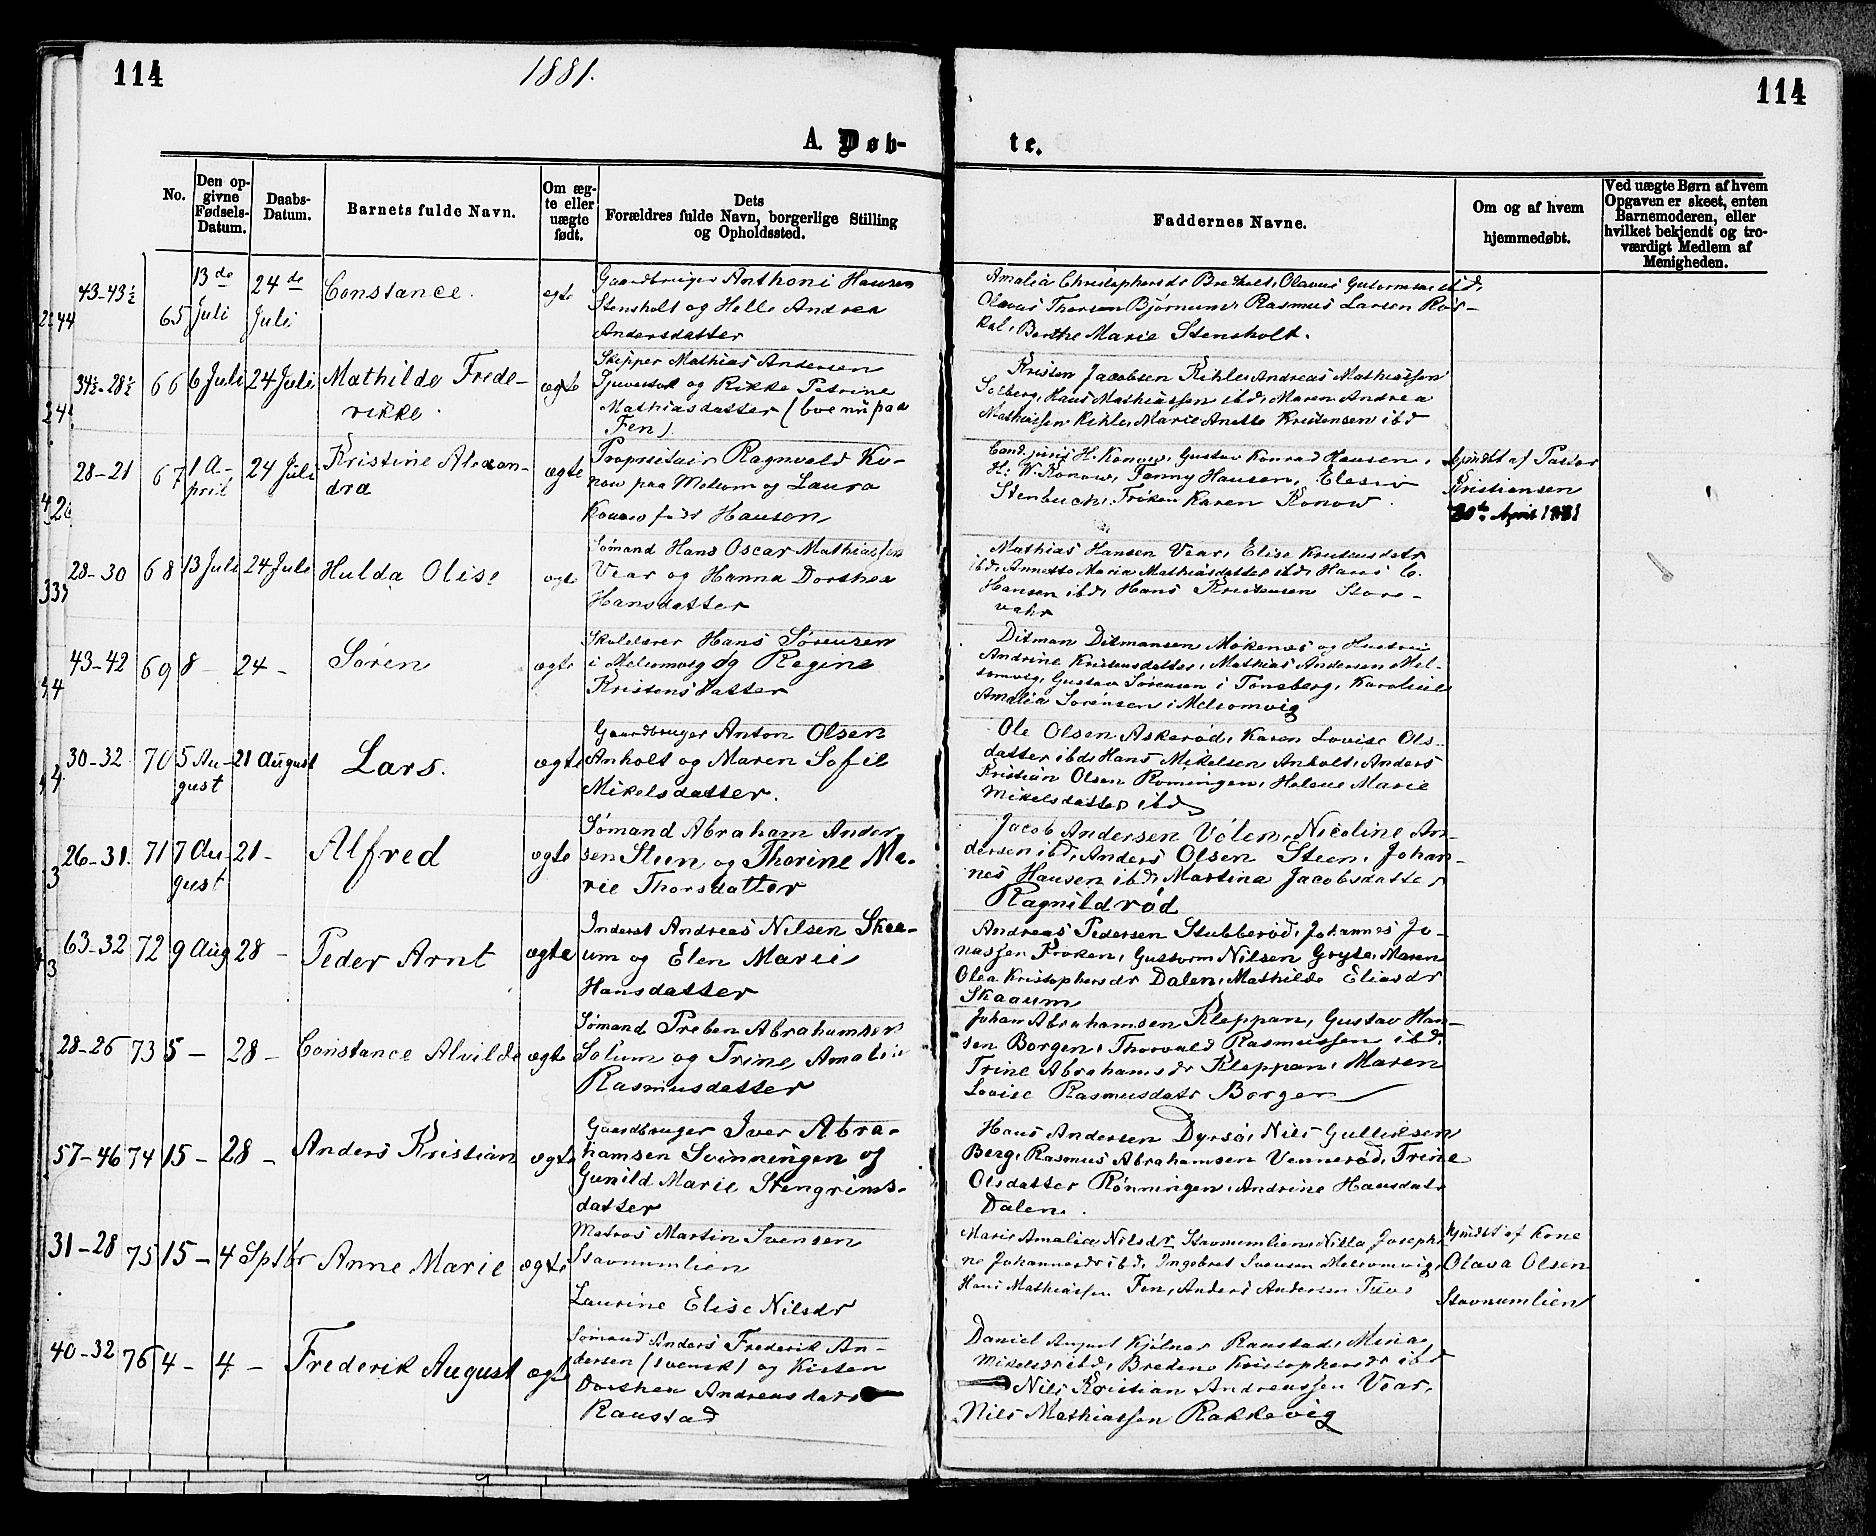 114
1881.
114
A. Døb-
te.
No.
Den op-
givne
Fødsels-
Datum.
Daabs-
Datum.
Barnets fulde Navn.
Om æg-
te eller
uægte
født.
Dets
Forældres fulde Navn, borgerlige Stilling
og Opholdssted.
Faddernes Navne.
Om og af hvem
hjemmedøbt.
Ved uægte Børn af hvem
Opgaven er skeet, enten
Barnemoderen, eller
hvilket bekjendt og tro-
værdigt Medlem af
Menigheden.
43-43½
65
13de
Juli
24de
Juli
Constance.
egte
Gaardbruger Anthoni Hansen
Stensholt og Helle Andrea
Andersdatter
Amalia Christophersdr Olavus Guttormsen ibd,
Olavus Thorsen Bjørnum, Rasmus Larsen Ros-
kal, Berthe Marie Stensholt.
34½-28½
66
6 Juli
24 Juli
Mathilde Frede-
rikke.
ægte
Skipper Mathias Andersen
og Rikke Petrine
Mathiasdatter (boe nu paa
Fen)
Kristen Jacobsen Kihle, Andreas Mathiassen
Solberg, Hans Mathiassen ibd, Maren Andrea
Mathiassen Kihle, Marie Anette Kristensen ibd
28-21
67
1 A-
pril
24 Juli
Kristine Alexan-
dra
ægte
Propritair Ragnvald Ko-
now paa Melsom og Laura
Konow født Hansen
Cand. juris H. Konow, Gustav Konrad Hansen,
H. W. Konow, Fanny Hansen,
Stenbuch, Frøken Karen Konow.
hjmdbt af Pastor
Kristiansen
20de April 1881
28-30
68
13 Juli
24 Juli
Hulda Olise
ægte
Sømand Hans Oscar Mathiassen
Vear og Hanna Dorthea
Hansdatter
Mathias Hansen Vear, Elise Knudsdatr
ibd, Annette Maria Mathiasdatter ibd, Hans C.
Hansen ibd, Hans Kristensen Store-
vahr
43-42
69
8 -
24 -
Søren
ægte
Skolelærer Hans Sørensen
i Melsomvig og Regine
Kristensdatter
Ditman Ditmansen Møkenes og Hustru
Andrine Kristensdatter, Mathias Andersen Mel-
somvig, Gustav Sørensen i Tønsberg, Karoline
Amalia Sørensen i Melsomvig
30-32
70
5 Au-
gust
21 August
Lars.
ægte
Gaardbruger Anton Olsen
Anholt og Maren Sofie
Mikelsdatter.
Ole Olsen Askerød, Karen Lovise Ols-
datter ibd, Hans Mikelsen Anholt, Anders
Kristian Olsen Rønningen, Helene Marie
Mikelsdatter ibd
26-31.
71
7 Au-
gust
21 -
Alfred
ægte
Sømand Abraham Ander-
sen Steen og Thorine Ma-
rie Thorsdatter
Jacob Andersen Vølen, Nicoline An-
dersen ibd, Anders Olsen Steen, Johan-
nes Hansen ibd, Martina Jacobsdatter
Ragnildrød
63-32
72
9 Aug
28 -
Peder Arnt
ægte
Inderst Andreas Nilsen Skaa-
um og Elen Marie
Hansdatter
Andreas Pedersen Stubberød, Johannes Jo-
nassen Frøken, Guttorm Nilsen Gryte, Maren
Olea Kristophersdr Dalen, Mathilde Eliasdr
Skaaum
28-26
73
5 -
28 -
Constance Alvilde
ægte
Sømand Preben Abrahamsen
Solum og Trine Amalie
Rasmusdatter
Johan Abrahamsen Kleppan, Gustav Han-
sen Borgen, Thorvald Rasmussen ibd,
Trine Abrahamsdr Kleppan, Maren
Lovise Rasmusdatr Borgen
57-46
74
15 -
28 -
Anders Kristian
ægte
Gaardbruger Iver Abra-
hamsen Svinningen og
Gunild Marie Stengrims-
datter
Hans Andersen Dyrsø, Nils Gulliksen
Berg, Rasmus Abrahamsen Vennerød, Trine
Olsdatter Rønningen, Andrine Hansdatr
Dalen.
31-28
75
15 -
4 Sptbr
Anne Marie
ægte
Matros Martin Svensen
Stavnumlien
Laurine Elise Nilsdr
Marie Amalia Nilsdr Stavnumlien, Nilla Josephi-
ne Johannesdr ibd, Ingebret Svensen Melsomvig,
Hans Mathiassen Fen, Anders Andersen
hjmdbt af Kone
Olava Olsen
Stavnumlien
40-32
76
4 -
4 -
Frederik August
ægte
Sømand Anders Frederik An-
dersen (svensk) og Kirsten
Dorthea Andreasdatr
Raustad
Daniel August Kjølner Raustad, Mina
Mikelsdr ibd, Bredine Kristophersdr ibd
Nils Kristian Andreassen Vear,
Nils Mathiassen Rakkevig